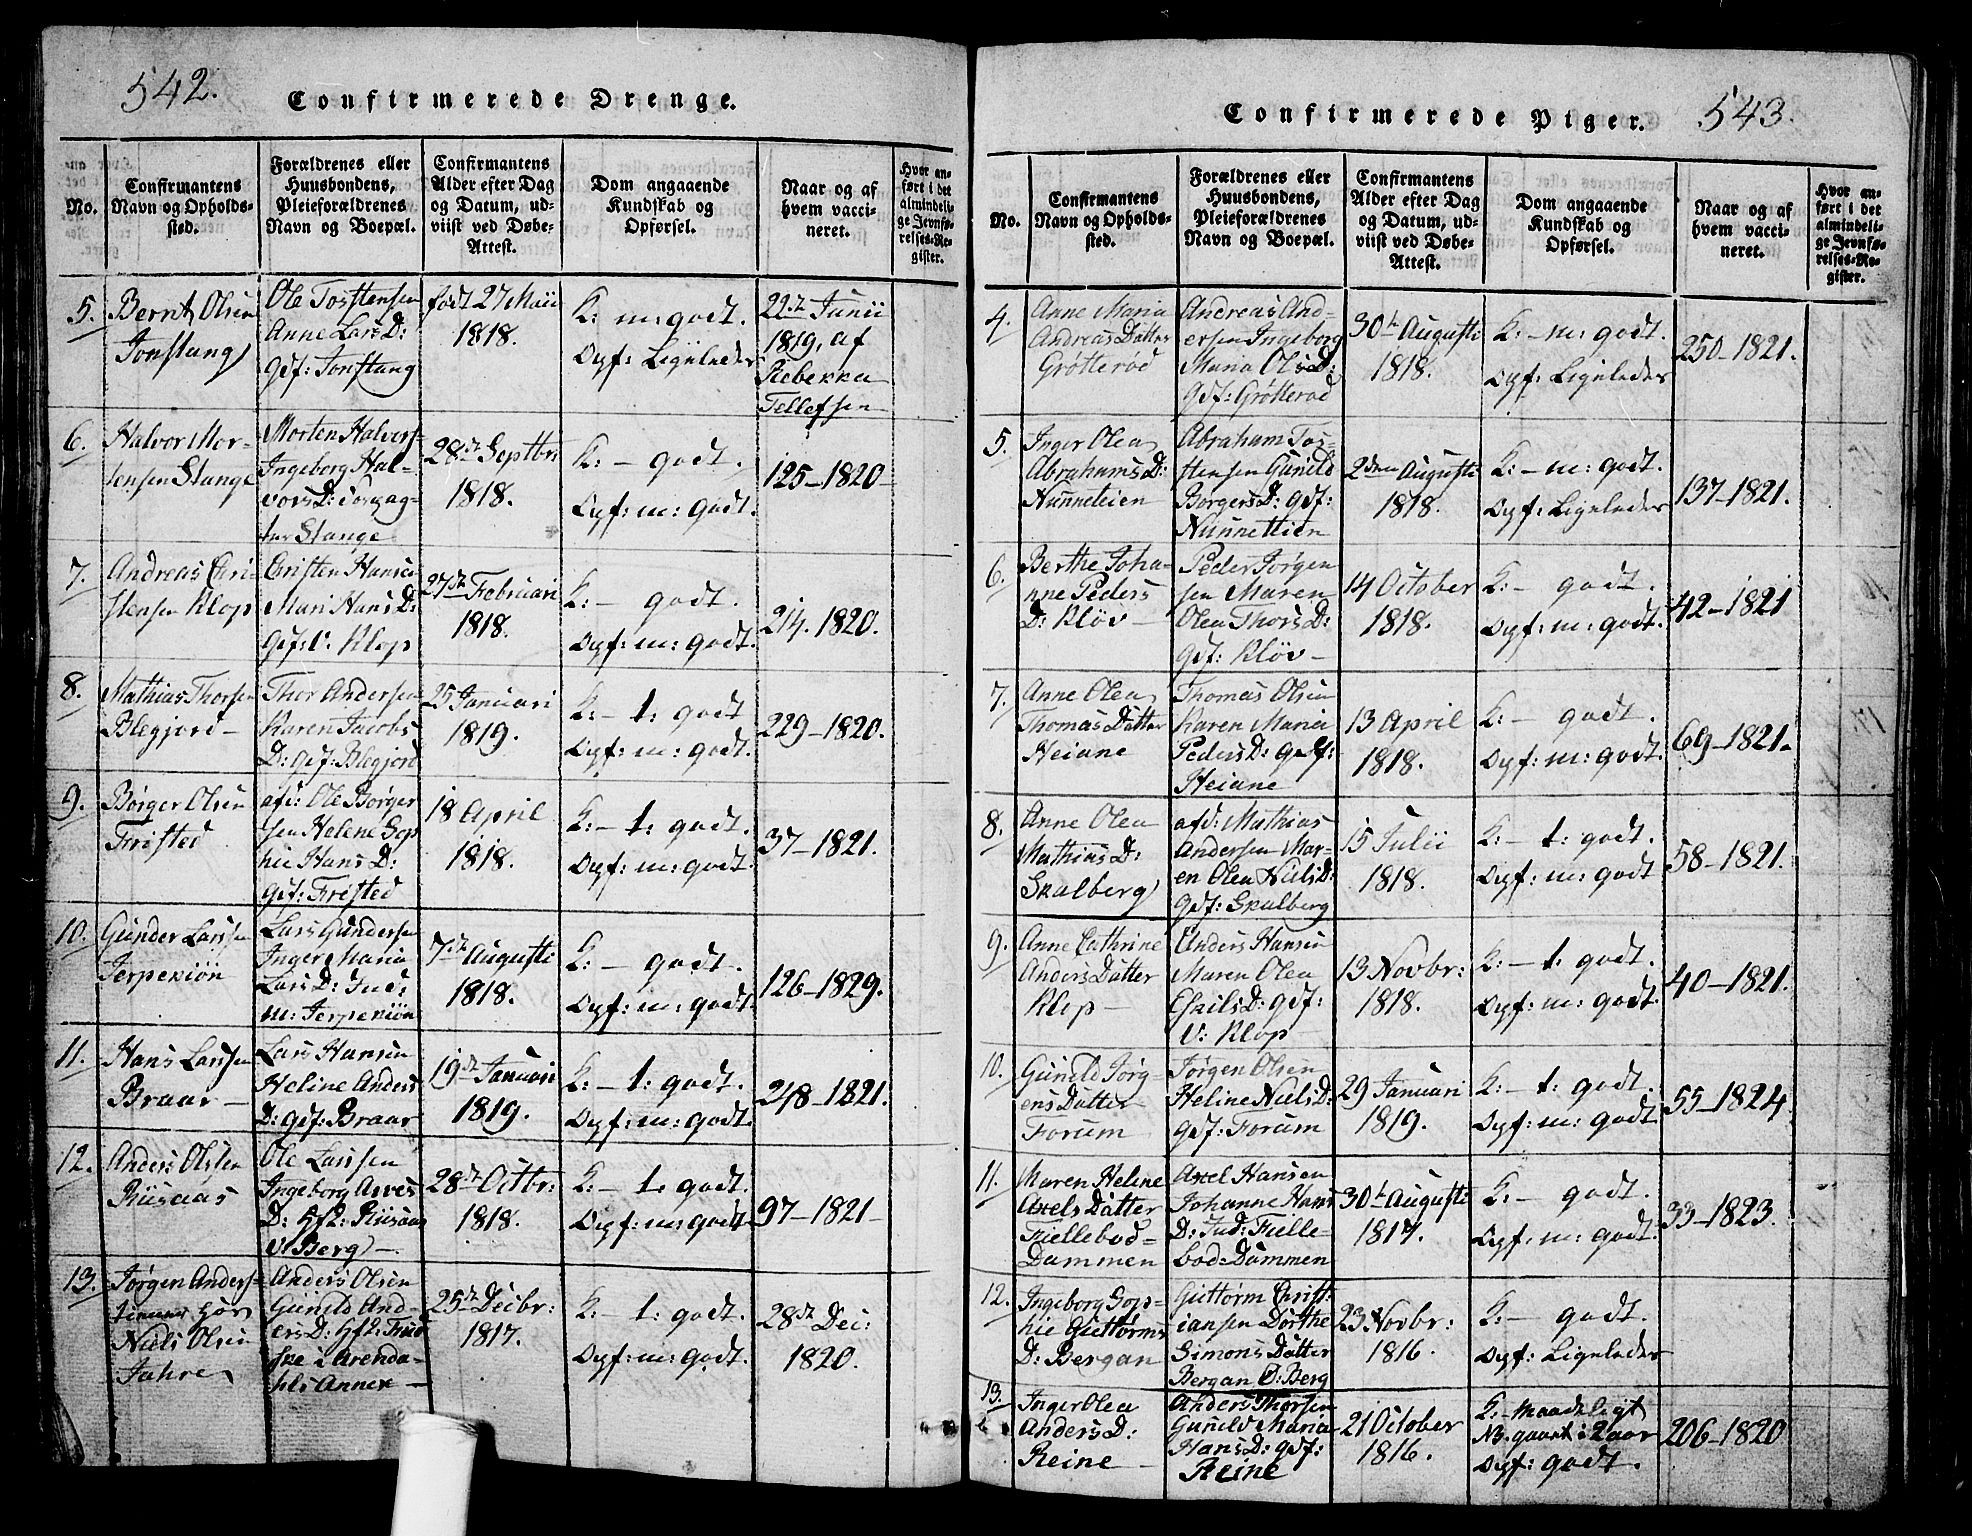 542.
Confirmerede Drenge.
No.
Confirmantens
Navn og Opholds-
sted.
Forældrenes eller
Huusbondens,
Pleieforældrenes
Navn og Boepæl.
Confirmantens
Alder efter Dag
og Datum, ud-
viist ved Døbe-
Attest.
Dom angaaende
Kundskab og
Opførsel.
Naar og af
hvem vacci-
neret.
Hvor an-
ført i det
almindeli-
ge Jevnfø-
relses-Re-
gister.
5.
Bernt Olsen
Jonstang
Ole Tostensen
Anne Lars D:
Gdf: Jonstang
født 27 Maii
1818.
K: m: godt.
Opf: Ligeledes
22de Junii
1819, af
Rebekka
Tellefsen
6.
Halvor Mor-
tensen Stange
Morten Halvers-
Ingeborg Hal-
vors D: Forpag-
ter Stange
28de Septbr:
1818.
K: — godt.
Opf: m: godt.
125—1820—
7.
Andreas Chri-
stensen Klop
Christen Hansen
Mari Hans D:
Gdf: V: Klop
27de Februari
1818.
K: — godt.
Opf: m: godt.
214. 1820.
8.
Mathias Thorsen
Blegjord—
Thor Andersen
Karen Jacobs
D: Gdf: Blegjord
25 Januari
1819.
K: — t: godt
Opf: m: godt.
229—1820.
9.
Børger Olsen
Fristed
afd: Ole Børger
sen Helene Sop
hie Hans D:
Gdf: Fristed
18 April
1818.
K: — t: godt.
Opf: m: godt.
37—1821.
10.
Gunder Larsen
Jerpekiøn
Lars Gundersen
Inger Maria
Lars D: Ind:
m: Jerpekiøn
7de Augusti
1818.
K: — godt.
Opf: m: godt.
126—1829.
11.
Hans Larsen
Braar—
Lars Hansen
Heline Anders
D: Gdf: Braar
19de Januari
1819.
K: — t: godt.
Opf: m: godt.
248—1821.
12.
Anders Olsen
Riisaas
Ole Larssen
Ingeborg Arves
D: Hf2: Riisaas
v. Berg—
28de Octbr:
1818.
K: — t: godt.
Opf: m: godt
97—1821—
13.
Jørgen Anders-
tienner hos
Niels Olsen
Jahre
Anders Olsen
Gunild And-
ers D: Hf2:
ske i Arenda-
hls Annex—
25de Decbr:
1817.
K: — t: godt
Opf: m: godt.
28de Dec:
1820.
Confirmerede Piger.
543.
No.
Confirmantens
Navn og Opholds-
sted.
Forældrenes eller
Huusbondens,
Pleieforældrenes
Navn og Boepæl.
Confirmantens
Alder efter Dag
og Datum, ud-
viist ved Døbe-
Attest.
Dom angaaende
Kundskab og
Opførsel.
Naar og af
hvem vacci-
neret.
Hvor an-
ført i det
almindeli-
ge Jevnfø-
relses-Re-
gister.
4.
Anne Maria
Andreas Datter
Grøtterød
Andreas And-
ersen Ingeborg
Maria Ols D:
Gdf: Grøtterød
30te Augusti
1818.
K: — m: godt.
Opf: Ligeledes
250—1821.
5.
Inger Olea
Abrahams D:
Nunneteien
Abraham Tos-
stensen Gunild
Borgers D: Gdf:
Nunnettien
2den Augusti
1818.
K: — m: godt.
Opf: Ligeledes
137—1821.
6.
Berthe Joha-
nne Peders
D: Kløv—
Peder Jørgen
sen Maren
Olea Thors D:
Gdf: Kløv—
14 October
1818.
K: — godt.
Opf: m: godt.
42—1821
7.
Anne Olea
Thomas Datter
Heiane
Thomas Olsen
Karen Maria
Peders D: Gdf:
Heiane
13 April
1818.
K: — godt.
Opf: m: godt.
69—1821.
8.
Anne Olea
Mathias D:
Skalberg
afd: Mathias
Andersen Mar-
en Olea Niels D:
Gdf: Skalberg
15 Julii
1818.
K: — t: godt.
Opf: m: godt
58—1821.
9.
Anne Cathrine
Anders Datter
Klop—
Anders Hansen
Maren Olea
Eskils D: Gdf:
V: Klop
13 Novbr:
1818.
K: — t: godt.
Opf: m: godt.
40—1821.
10.
Gunild Jørg-
ens Datter
Forum
Jørgen Olsen
Heline Niels D:
Gdf: Forum
29 Januari
1819.
K: — t: godt.
Opf: m: godt
55—1824
11.
Maren Helene
Axels Datter
Fiellebod-
Dammen
Axel Hansen
Johanne Hans
D: Ind: Fielle-
bod-Dammen
30te Augusti
1817.
K: — godt.
Opf: m: godt.
33—1823.
12.
Ingeborg Sop-
hie Guttorms
D: Bergan
Guttorm Christ-
iansen Dorthe
Simons Datter
Bergan O: Berg
23 Novbr:
1816.
K: — godt.
Opf: Ligeledes
13.
Inger Olea
Anders D:
Reine —
Anders Thorsen
Gunild Maria
Hans D: Gdf:
Reine
21 October
1816.
K: — Maadeligt
NB. gaaet i 2 aar
Opf: godt.
206—1820